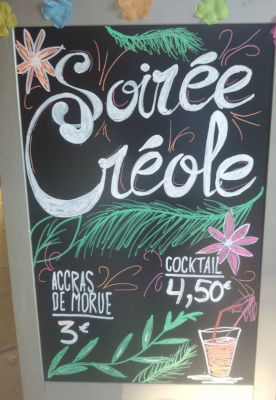 Soirée
Créole
ACCRAS
DE MORUE
3€
COCKTAIL
4,50€